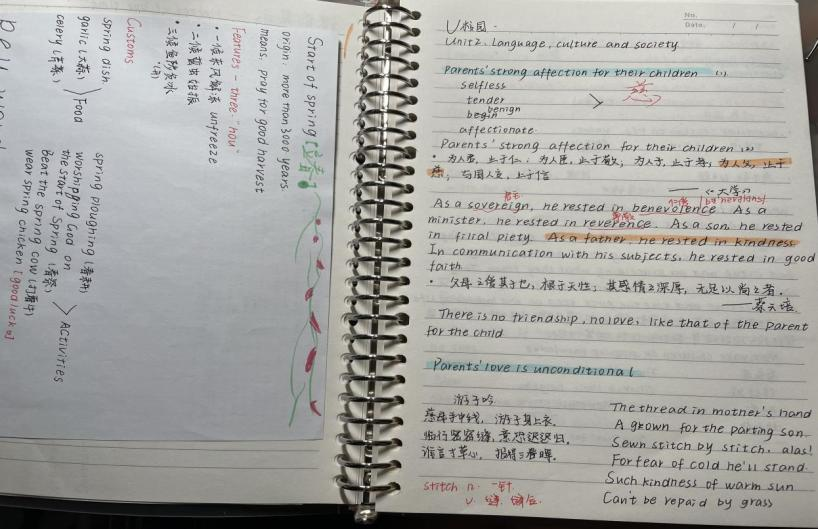 Start of spring [立春]
origin: more than 3000 years.
means: pray for good harvest
Features - three "hou"
· 一候东风解冻 unfreeze
· 二候蛰虫始振
· 三候鱼陟负冰
Customs
spring dish
garlic (大蒜)
celery (芹菜)
Food
spring ploughing (春耕)
worshipping God on
the start of Spring (春祭)
Beat the spring cow (打春牛)
wear spring chicken [good luck]
Activities
No.
Date. / /
U校园.
Unit2. Language, culture and society
Parents' strong affection for their children (1)
selfless
tender
benign
begin
affectionate
慈
Parents' strong affection for their children (2)
· 为人君, 止于仁; 为人臣, 止于敬; 为人子, 止于孝; 为人父, 止于
慈; 与国人交, 止于信
——《大学》
君主
As a sovereign, he rested in benevolence. As a
minister, he rested in reverence. As a son, he rested
in filial piety. As a father, he rested in kindness
In communication with his subjects, he rested in good
faith
· 父母之爱其子也, 根于天性; 其感情之深厚, 无足以尚之者.
——蔡元培
There is no friendship, no love, like that of the parent
for the child
Parents' love is unconditional
游子吟
慈母手中线, 游子身上衣.
临行密密缝, 意恐迟迟归.
谁言寸草心, 报得三春晖.
The thread in mother's hand
A grown for the parting son
Sewn stitch by stitch, alas!
For fear of cold he'll stand
Such kindness of warm sun
Can't be repaid by grass
stitch n. 一针
v. 缝, 缝合.